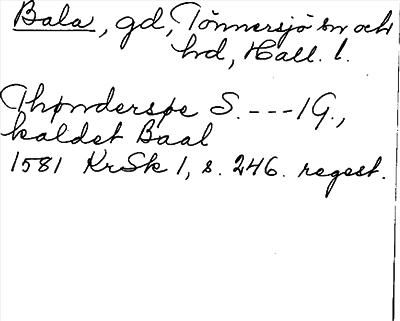 Bala, gd, Tönnersjö sn och
hd, Hall. l.
Thønderspe S. ---1 G.,
kaldet Baal
1581 KrSk 1, s. 246. regest.